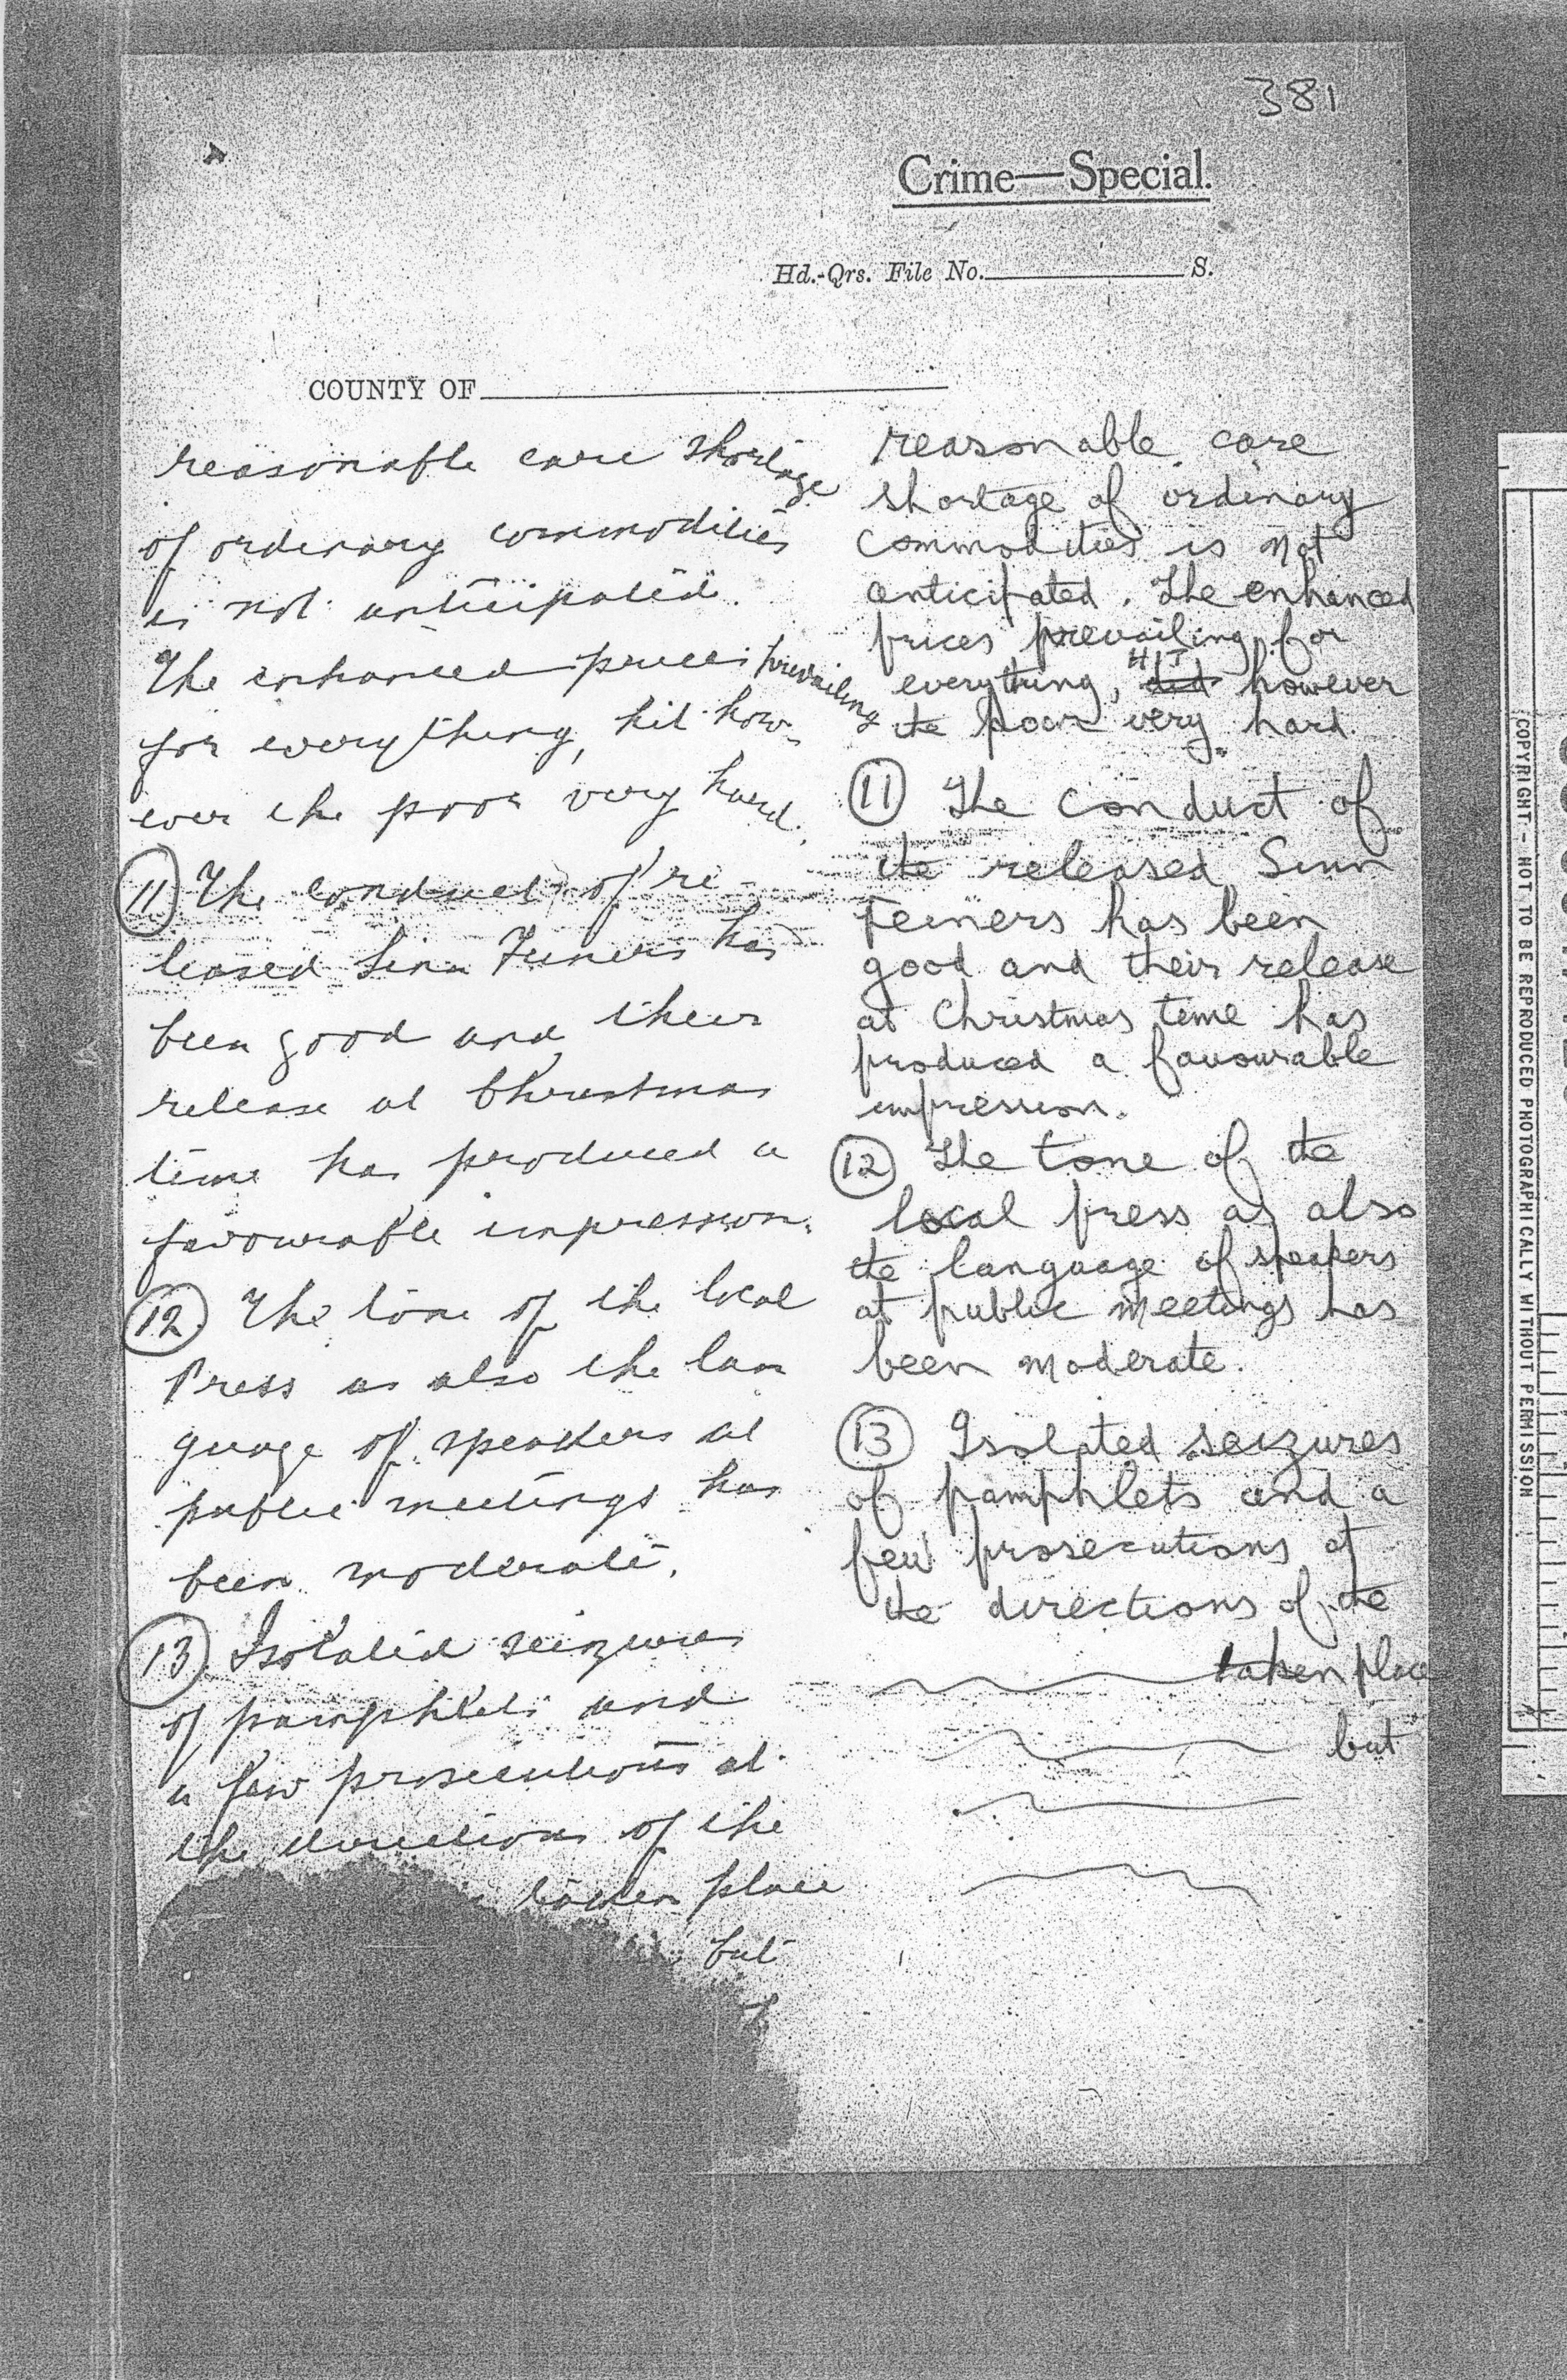 381
Crime—Special.
Hd.-Qrs. File No. S.
COUNTY OF
reasonable care shortage
of ordinary commodities
is not anticipated.
The enhanced prices prevailing
for everything, hit how-
ever the poor very hard.
11 The conduct of re-
leased Sinn Feiners has
been good and their
release at Christmas
time has produced a
favourable impression.
12 The tone of the local
Press as also the lan
guage of speakers at
public meetings has
been moderate.
13 Isolated seizures
of pamphlets and
a few prosecutions at
the directions of the
taken place
but
reasonable care
shortage of ordinary
commodities is not
anticipated. The enhanced
prices prevailing for
everything, did HIT however
the poor very hard.
11 The conduct of
the released Sinn
Feiners has been
good and their release
at Christmas time has
produced a favourable
impression.
12 The tone of the
local press as also
the language of speakers
at public meetings has
been moderate.
13 Isolated seizures
of pamphlets and a
few prosecutions at
the directions of the
taken place
but
COPYRIGHT - NOT TO BE REPRODUCED PHOTOGRAPHICALLY WITHOUT PERMISSION